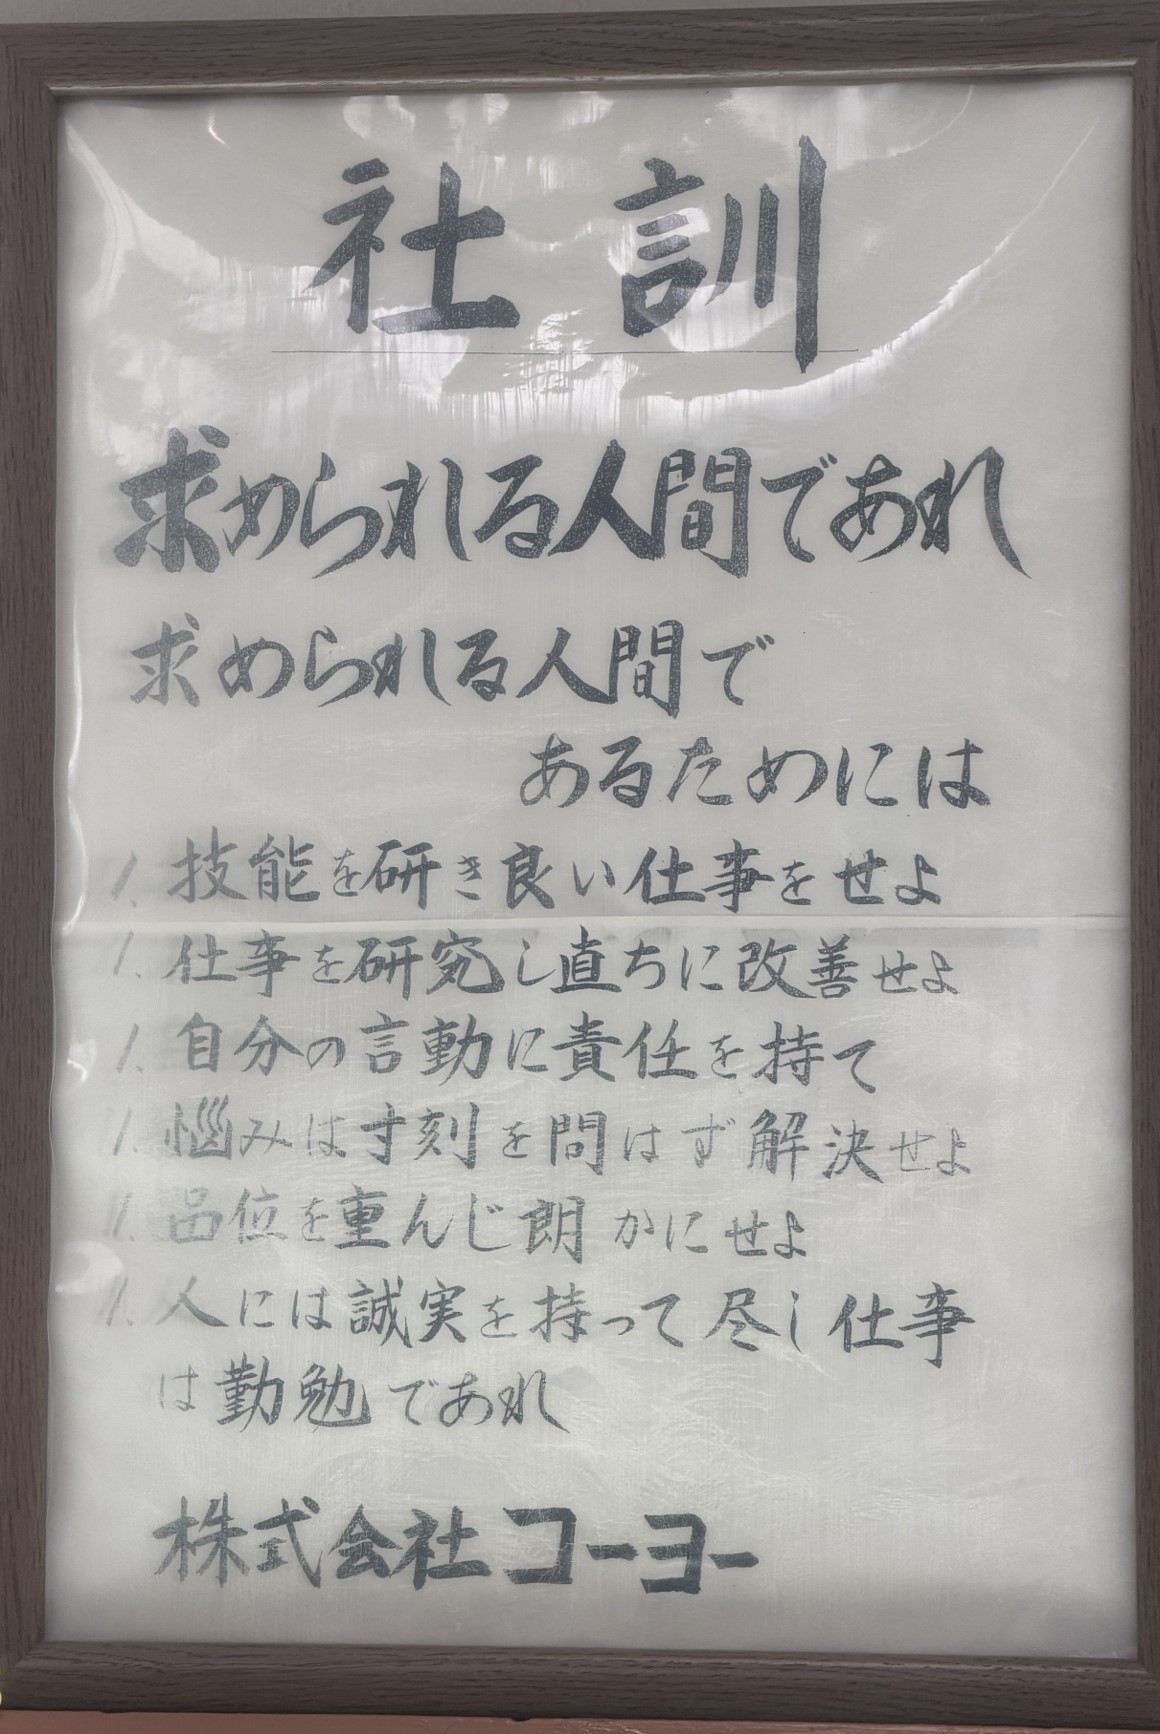 社訓
求められる人間であれ
求められる人間で
あるためには
1. 技能を研き良い仕事をせよ
1. 仕事を研究し直ちに改善せよ
1. 自分の言動に責任を持て
1. 悩みは寸刻を問はず解決せよ
1. 品位を重んじ朗かにせよ
1. 人には誠実を持って尽し仕事
は勤勉であれ
株式会社コーヨー